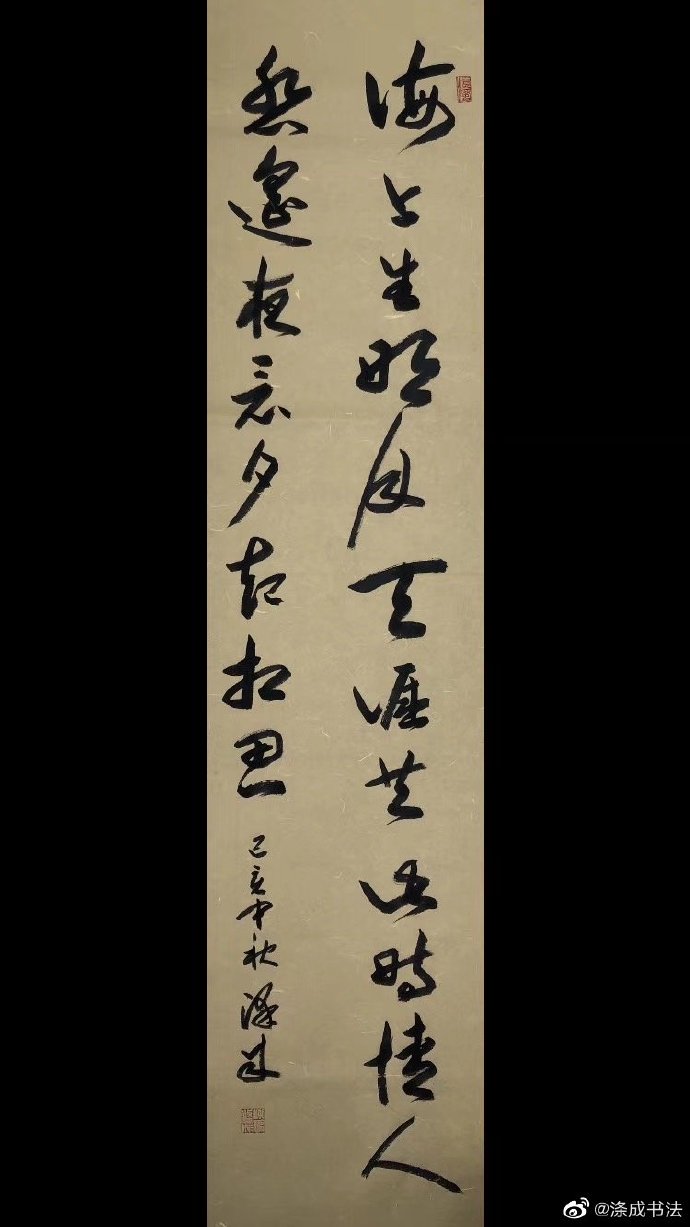 海上生明月天涯共此時情人
怨遙夜竟夕起相思
己亥中秋 滌成
@涤成书法